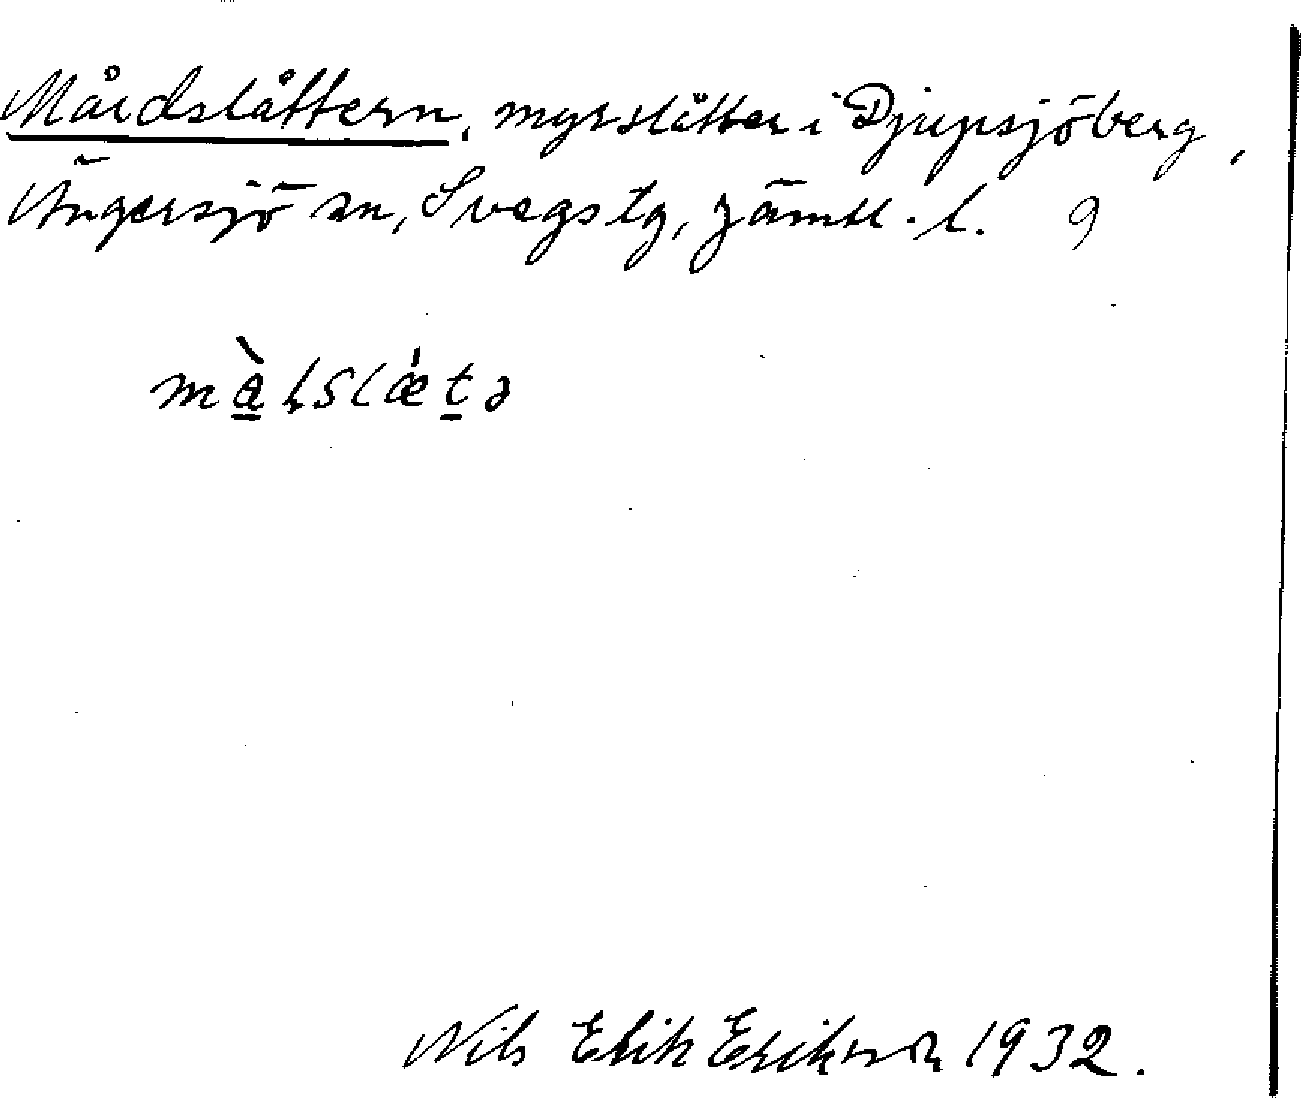 Mårdslåttern, myrslåtter i Djupsjöberg,
Ängersjö sn, Svegs tg, Jämtl. l. 9
mà̱ḷslǽṯə
Nils Erik Eriksson 1932.